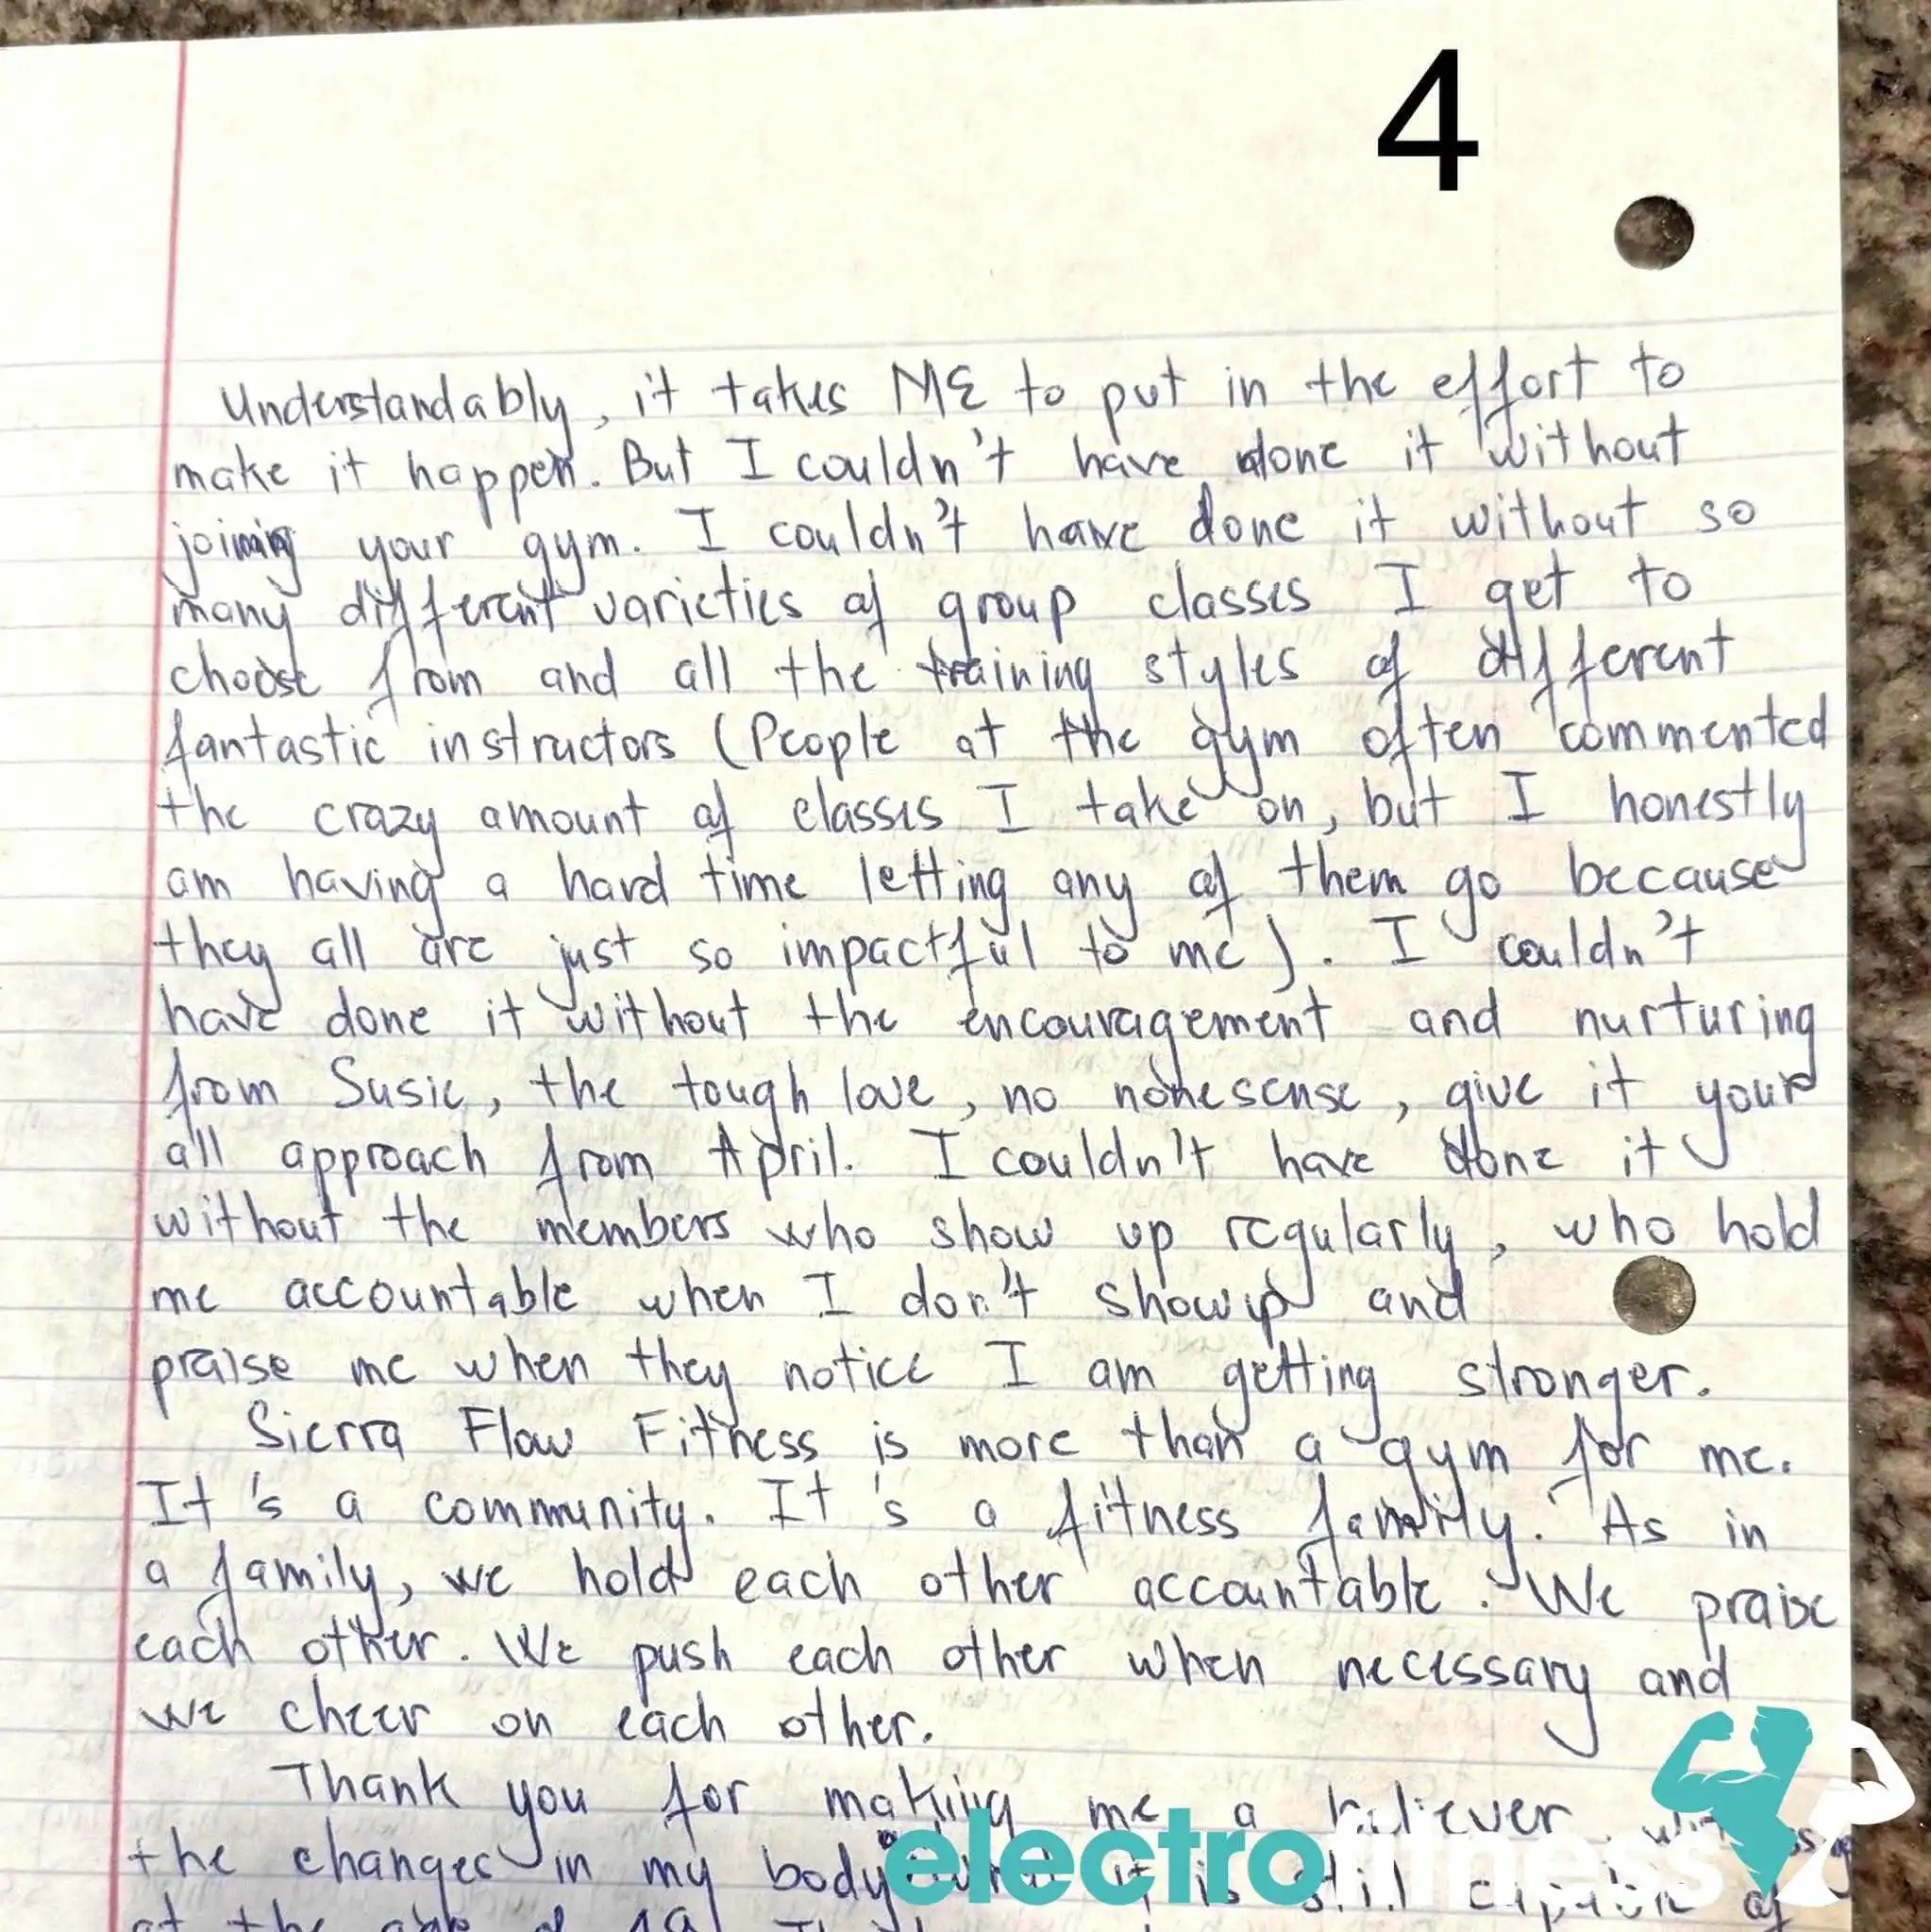 4
Understandably, it takes ME to put in the effort to
make it happen. But I couldn't have done it without
joining your gym. I couldn't have done it without so
many different varieties of group classes I get to
choose from and all the training styles of different
fantastic instructors (People at the gym often commented
the crazy amount of classes I take on, but I honestly
am having a hard time letting any of them go because
they all are just so impactful to me). I couldn't
have done it without the encouragement and nurturing
from Susie, the tough love, no nonesense, give it your
all approach from April. I couldn't have done it
without the members who show up regularly, who hold
me accountable when I don't show up and
praise me when they notice I am getting stronger.
Sierra Flow Fitness is more than a gym for me.
It's a community. It's a fitness family. As in
a family, we hold each other accountable. We praise
each other. We push each other when necessary and
we cheer on each other.
Thank you for making me a believer
the changes in my body it is still capable of
at the age of 49!
electrofitness